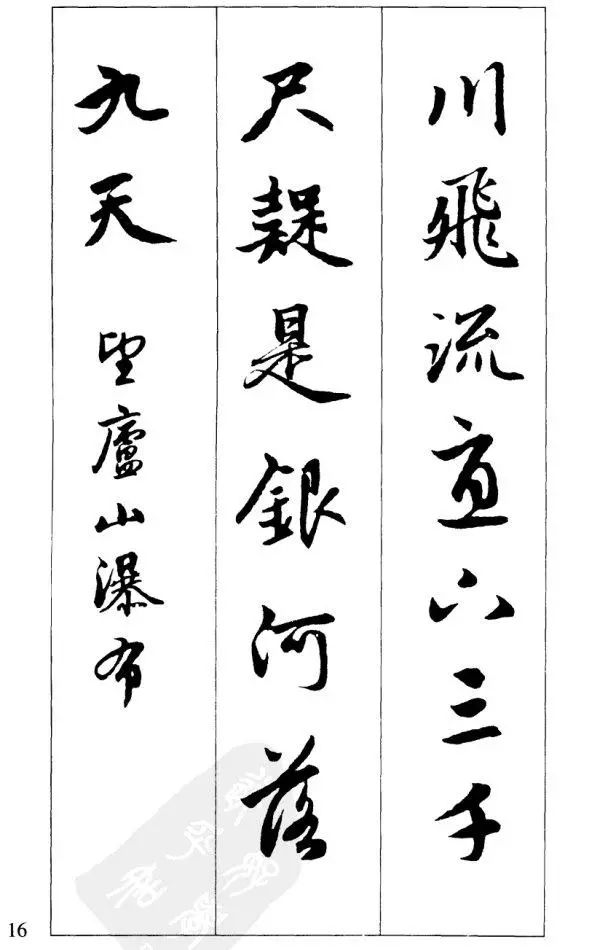 川飛流直下三千
尺疑是銀河落
九天 望廬山瀑布
16